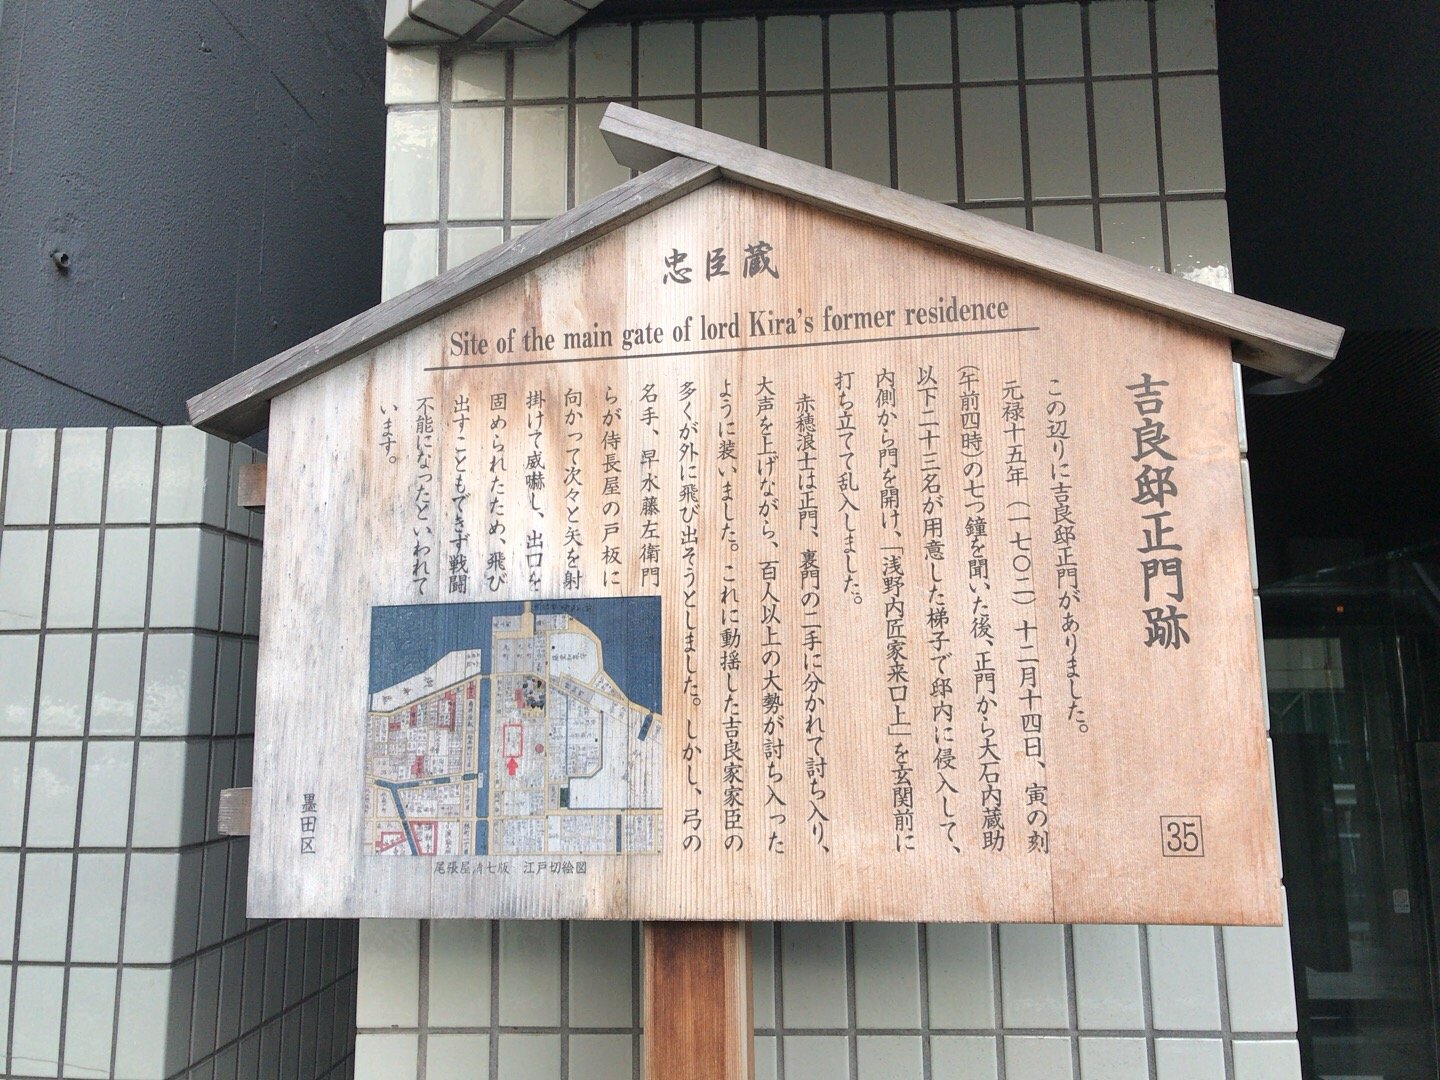 忠臣蔵
Site of the main gate of lord Kira's former residence
吉良邸正門跡
35
この辺りに吉良邸正門がありました。
元禄十五年（一七〇二）十二月十四日、寅の刻
（午前四時）の七つ鐘を聞いた後、正門から大石内蔵助
以下二十三名が用意した梯子で邸内に侵入して、
内側から門を開け、「浅野内匠家来口上」を玄関前に
打ち立てて乱入しました。
赤穂浪士は正門、裏門の二手に分かれて討ち入り、
大声を上げながら、百人以上の大勢が討ち入った
ように装いました。これに動揺した吉良家家臣の
多くが外に飛び出そうとしました。しかし、弓の
名手、早水藤左衛門
らが侍長屋の戸板に
向かって次々と矢を射
掛けて威嚇し、出口を
固められたため、飛び
出すこともできず戦闘
不能になったといわれて
います。
尾張屋清七版　江戸切絵図
墨田区